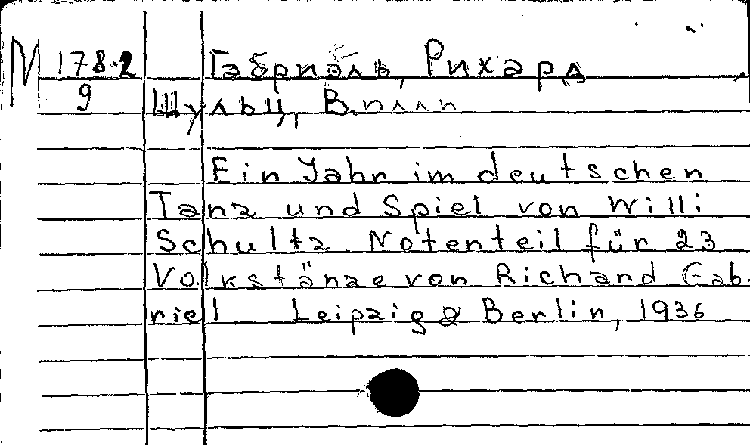 N 178.2 Габриэль, Рихард
9 Шульц, Вилли
Ein Jahr im deutschen
Tanz und Spiel von Willi
Schultz. Notenteil für 23
Volkstänze von Richard Gab-
riel Leipzig & Berlin, 1936